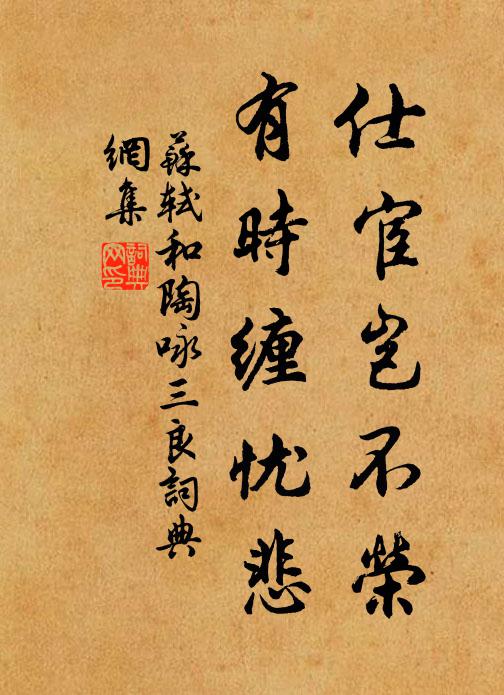 仕宦岂不榮
有時纏忧悲
蘇軾和陶咏三良詞典
網集
詞典
网印